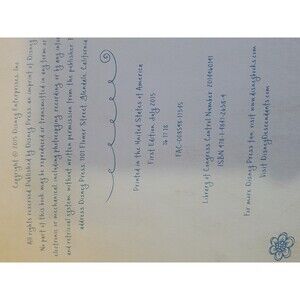 Copyright © 2015 Disney Enterprises, Inc.
All rights reserved. Published by Disney Press, an imprint of Disney
No part of this book may be reproduced or transmitted in any form or
electronic or mechanical, including photocopying, recording, or by any
and retrieval system, without written permission from the publisher.
address Disney Press, 1101 Flower Street, Glendale, California
Printed in the United States of America
First Edition, July 2015
Library of Congress Control Number:
ISBN
For more Disney Press fun, visit www.disneybooks.com
Visit DisneyDescendants.com